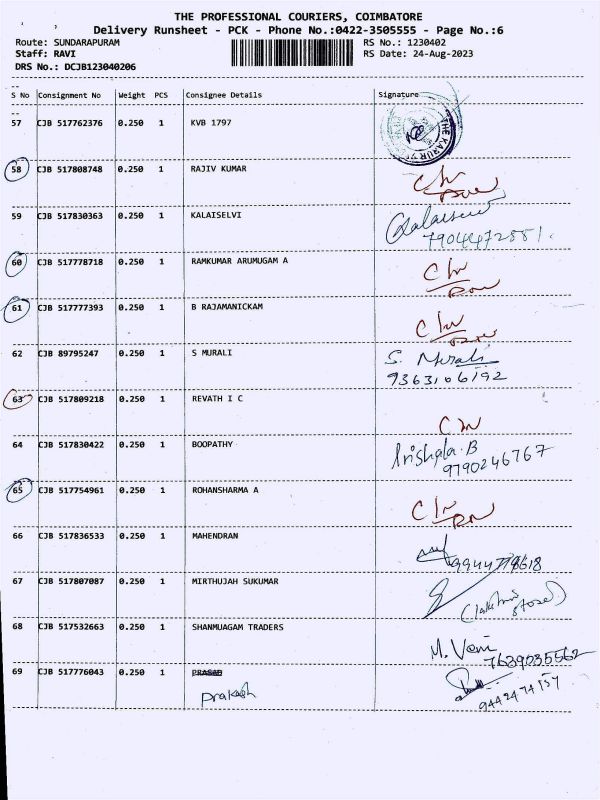 THE PROFESSIONAL COURIERS, COIMBATORE
Delivery Runsheet - PCK - Phone No.:0422-3505555 - Page No.:6
Route: SUNDARAPURAM RS No.: 1230402
Staff: RAVI RS Date: 24-Aug-2023
DRS No.: DCJB123040206
S No Consignment No Weight PCS Consignee Details Signature
57 CJB 517762376 0.250 1 KVB 1797
58 CJB 517808748 0.250 1 RAJIV KUMAR
59 CJB 517830363 0.250 1 KALAISELVI
60 CJB 517778718 0.250 1 RAMKUMAR ARUMUGAM A
61 CJB 517777393 0.250 1 B RAJAMANICKAM
62 CJB 89795247 0.250 1 S MURALI S. Murali
9363106192
63 CJB 517809218 0.250 1 REVATH I C
64 CJB 517830422 0.250 1 BOOPATHY
9790246767
65 CJB 517754961 0.250 1 ROHANSHARMA A
66 CJB 517836533 0.250 1 MAHENDRAN
67 CJB 517807087 0.250 1 MIRTHUJAH SUKUMAR
68 CJB 517532663 0.250 1 SHANMUAGAM TRADERS
M. Vani
7639035562
69 CJB 517776043 0.250 1 PRASAB
Prakash
9442474157